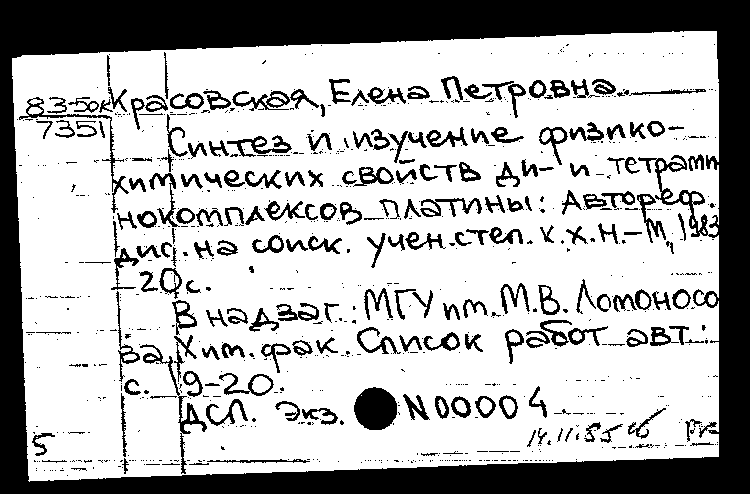 83-50к Красовская, Елена Петровна.
7351
Синтез и изучение физико-
химических свойств ди- и тетрами
нокомплексов платины: Автореф.
дис. на соиск. учен. степ. к.х.н.-М., 1983
-20с.
В надзаг.: МГУ им. М.В. Ломоносо
ва, Хим. фак. Список работ авт.:
с. 19-20.
ДСП. Экз. N00004
5
14.11.85